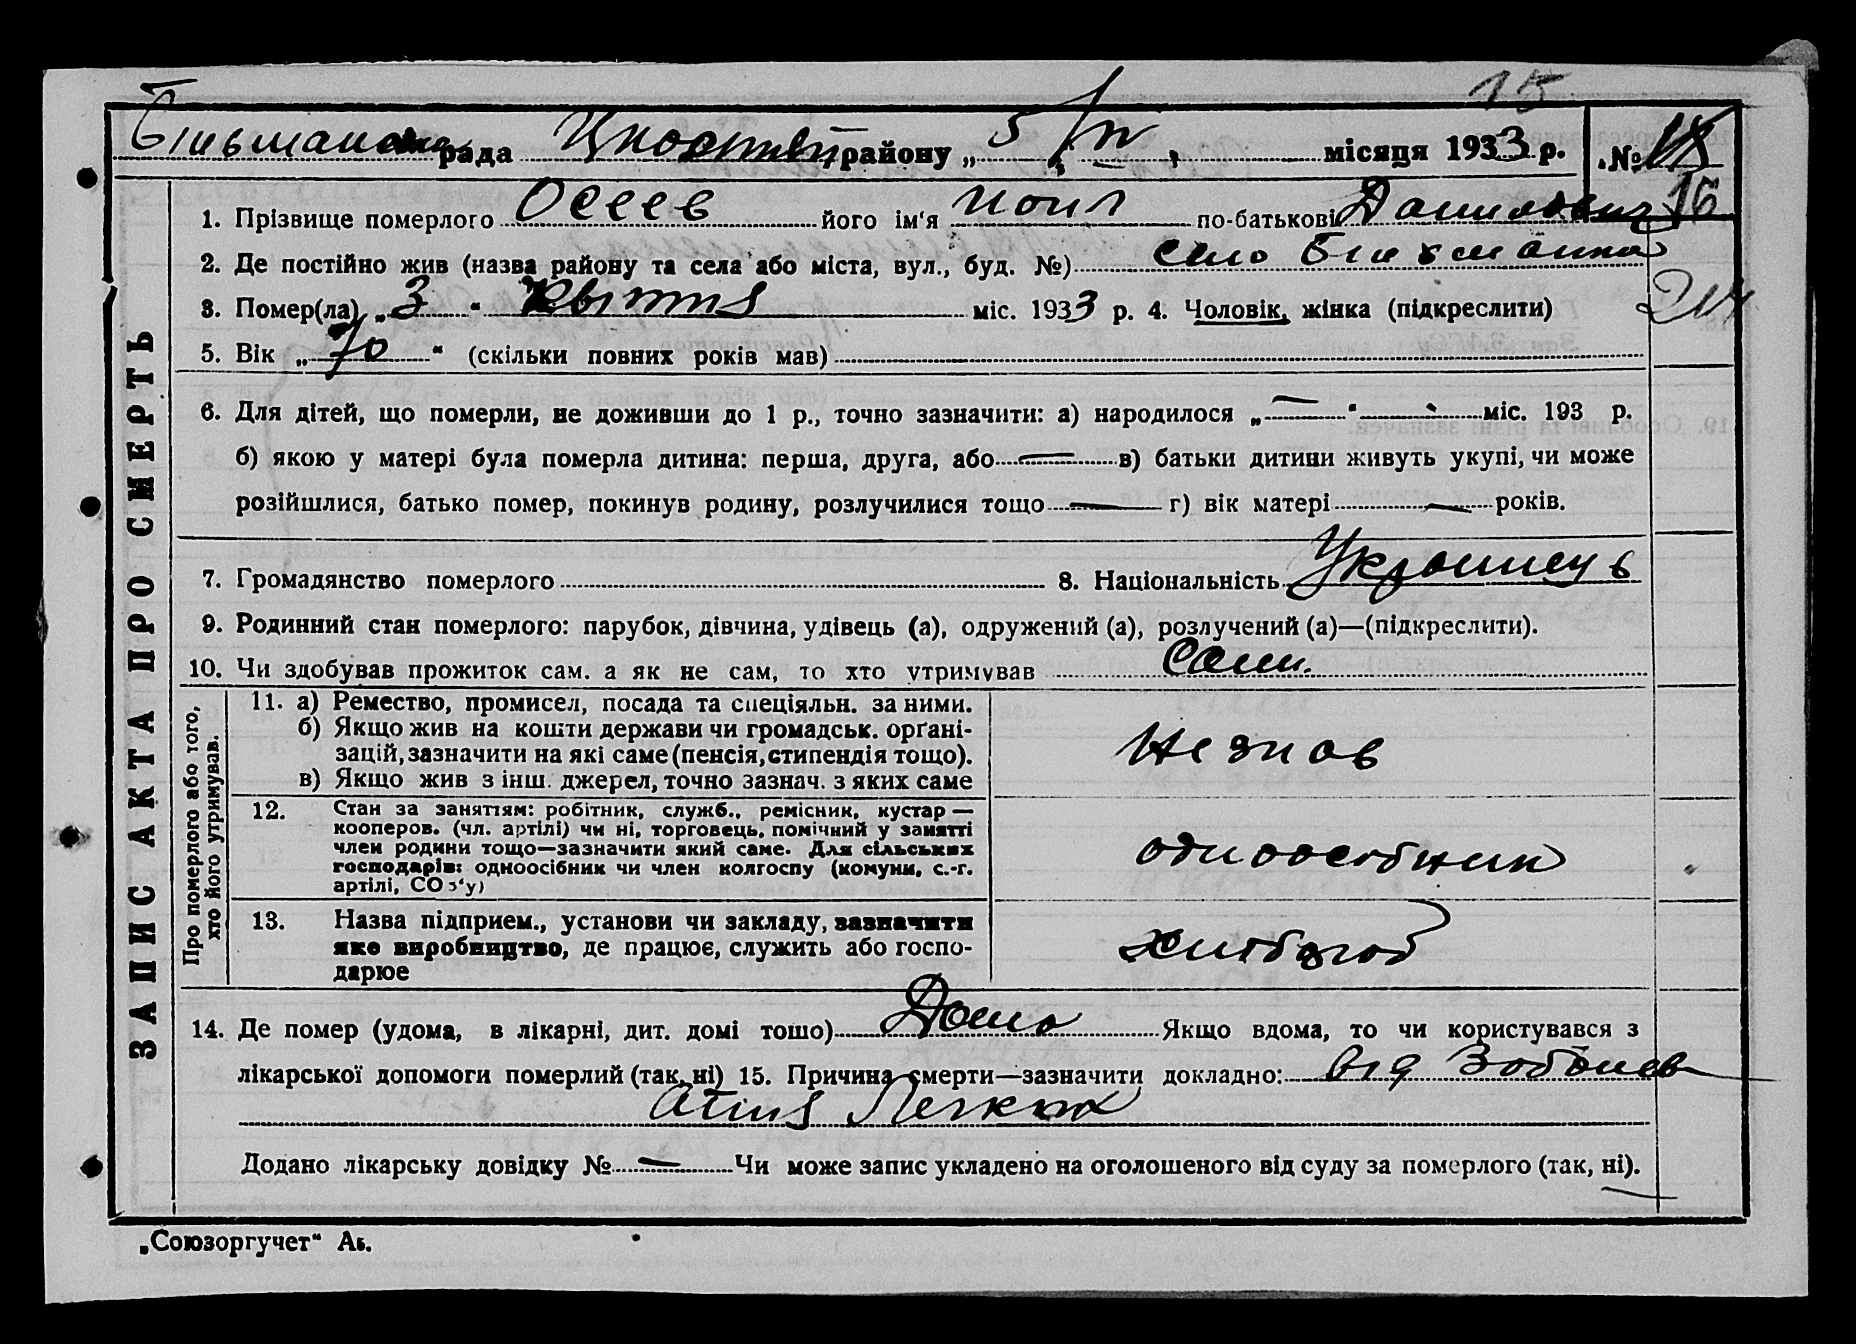 15
рада району „ 5 / IV , місяця 1933 р. № 15
16
1. Прізвище померлого Осеев його ім'я по-батькові Данилович
2. Де постійно жив (назва району та села або міста, вул., буд. №) село
3. Помер(ла) „ 3 " квітня міс. 1933 р. 4. Чоловік, жінка (підкреслити)
5. Вік „ 70 " (скільки повних років мав)
6. Для дітей, що померли, не доживши до 1 р., точно зазначити: а) народилося „ — " - міс. 193 р.
б) якою у матері була померла дитина: перша, друга, або — в) батьки дитини живуть укупі, чи може
розійшлися, батько помер, покинув родину, розлучилися тощо — г) вік матері — років.
7. Громадянство померлого 8. Національність Украинець
9. Родинний стан померлого: парубок, дівчина, удівець (а), одружений (а), розлучений (а)—(підкреслити).
10. Чи здобував прожиток сам. а як не сам, то хто утримував Сам.
ЗАПИС АКТА ПРО СМЕРТЬ
Про померлого або того,
хто його утримував.
11. а) Ремество, промисел, посада та спеціяльн. за ними.
б) Якщо жив на кошти держави чи громадськ. орґані-
зацій, зазначити на які саме (пенсія, стипендія тощо).
в) Якщо жив з інш. джерел, точно зазнач. з яких саме
Незнав
12. Стан за заняттям: робітник, служб., ремісник, кустар —
кооперов. (чл. артілі) чи ні, торговець, помічний у занятті
член родини тощо—зазначити який саме. Для сільських
господарів: одноосібник чи член колгоспу (комуни, с.-г.
артілі, СОЗ'у)
одноособник
13. Назва підприєм., установи чи закладу, зазначити
яке виробництво, де працює, служить або госпо-
дарює
хлібороб
14. Де помер (удома, в лікарні, дит. домі тощо) Дома Якщо вдома, то чи користувався з
лікарської допомоги померлий (так, ні) 15. Причина смерти—зазначити докладно: від
Легких
Додано лікарську довідку № — Чи може запис укладено на оголошеного від суду за померлого (так, ні).
„Союзоргучет" Аь.